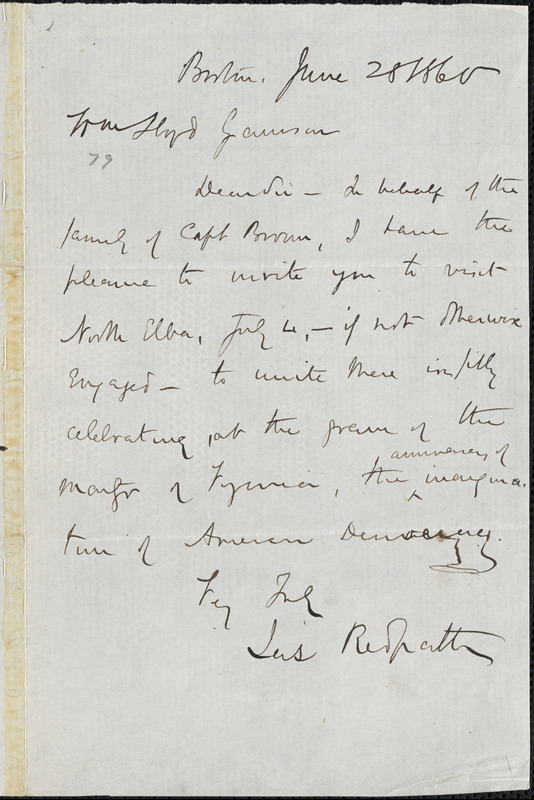 Boston, June 28 1860
Wm Lloyd Garrison
79
Dear Sir — In behalf of the
family of Capt Brown, I have the
pleasure to invite you to visit
North Elba, July 4, — if not otherwise
engaged — to unite there in fitly
celebrating, at the grave of the
anniversary of
martyr of Virginia, the inaugura-
tion of American Democracy.
Very Truly
Jas Redpath